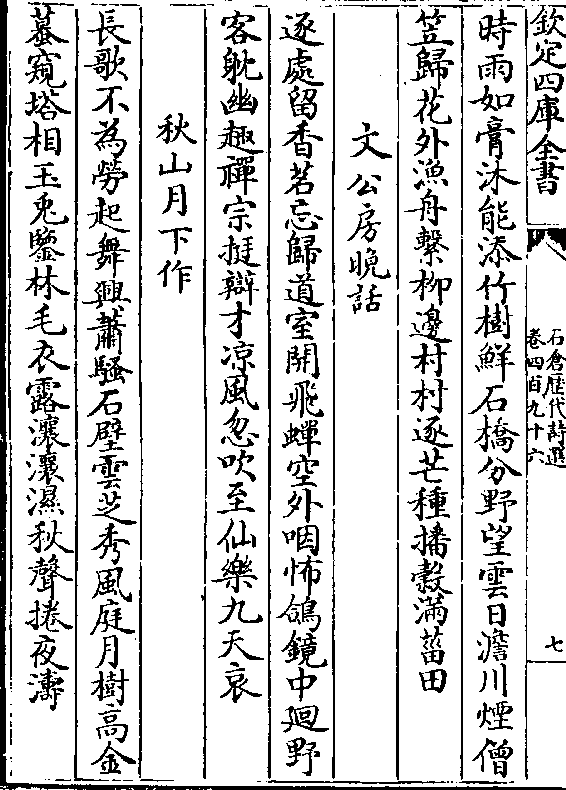 欽定四庫全書
石倉歷代詩選
卷四百九十六
七
時雨如膏沐能添竹樹鮮石橋分野望雲日澹川煙僧
笠歸花外漁舟繫柳邊村村逐芒種播穀滿菑田
文公房晚話
逐處留香茗忘歸道室開飛蟬空外咽怖鴿鏡中廻野
客躭幽趣禪宗挺辯才凉風忽吹至仙樂九天哀
秋山月下作
長歌不為勞起舞興蕭騷石壁雲芝秀風庭月樹高金
蟇窺塔相玉兎鑒林毛衣露瀼瀼濕秋聲捲夜濤